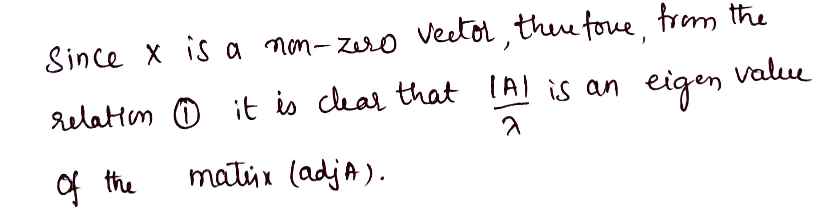 Since X is a non-zero vector, therefore, from the
relation ① it is clear that |A|/λ is an eigen value
of the matrix (adj A).